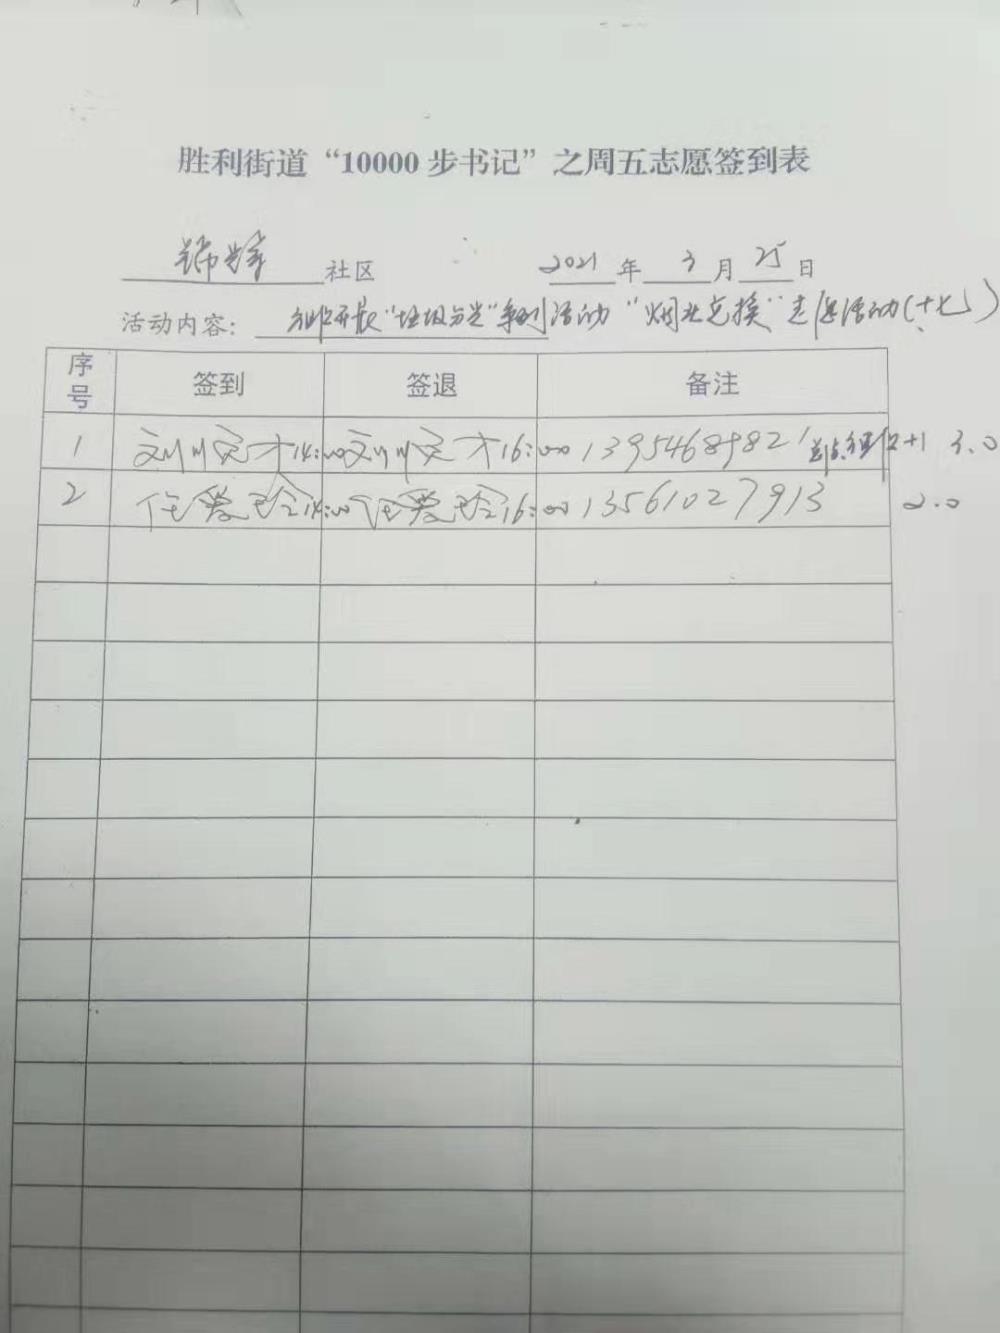 胜利街道“10000步书记”之周五志愿签到表
锦华社区 2021年3月25日
活动内容： 组织开展“垃圾分类”系列活动“烟头兑换”志愿活动(十七)
序号 签到 签退 备注
1 刘川定才14:00 刘川定才16:00 13954689821 +1 3.0
2 任爱玲14:00 任爱玲16:00 13561027913 2.0